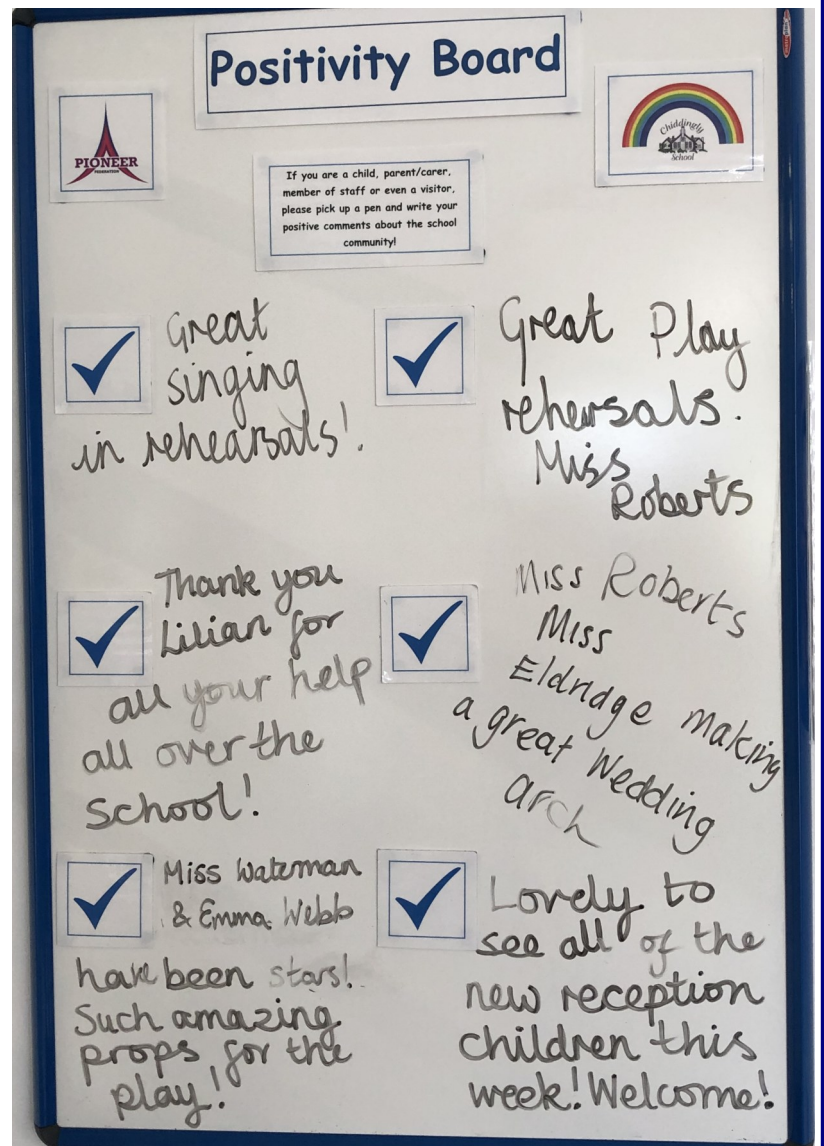 Positivity Board
PIONEER
FEDERATION
Chiddingly
School
If you are a child, parent/carer,
member of staff or even a visitor,
please pick up a pen and write your
positive comments about the school
community!
Great
singing
in rehearsals!
Great Play
rehersals.
Miss
Roberts
Thank you
Lilian for
all your help
all over the
school!
Miss Roberts
Miss
Eldridge making
a great Wedding
arch
Miss Waterman
& Emma Webb
have been stars!
Such amazing
props for the
play!
Lovely to
see all of the
new reception
children this
week! Welcome!